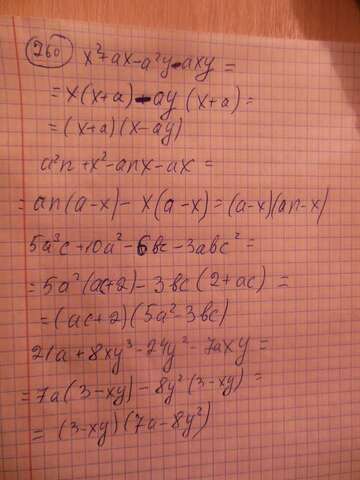 260 x²+ax-a²y-axy=
=x(x+a)-ay(x+a)=
=(x+a)(x-ay)
a²n+x²-anx-ax=
=an(a-x)-x(a-x)=(a-x)(an-x)
5a³c+10a²-6bc-3abc²=
=5a²(ac+2)-3bc(2+ac)=
=(ac+2)(5a²-3bc)
21a+8xy³-24y²-7axy=
=7a(3-xy)-8y²(3-xy)=
=(3-xy)(7a-8y²)